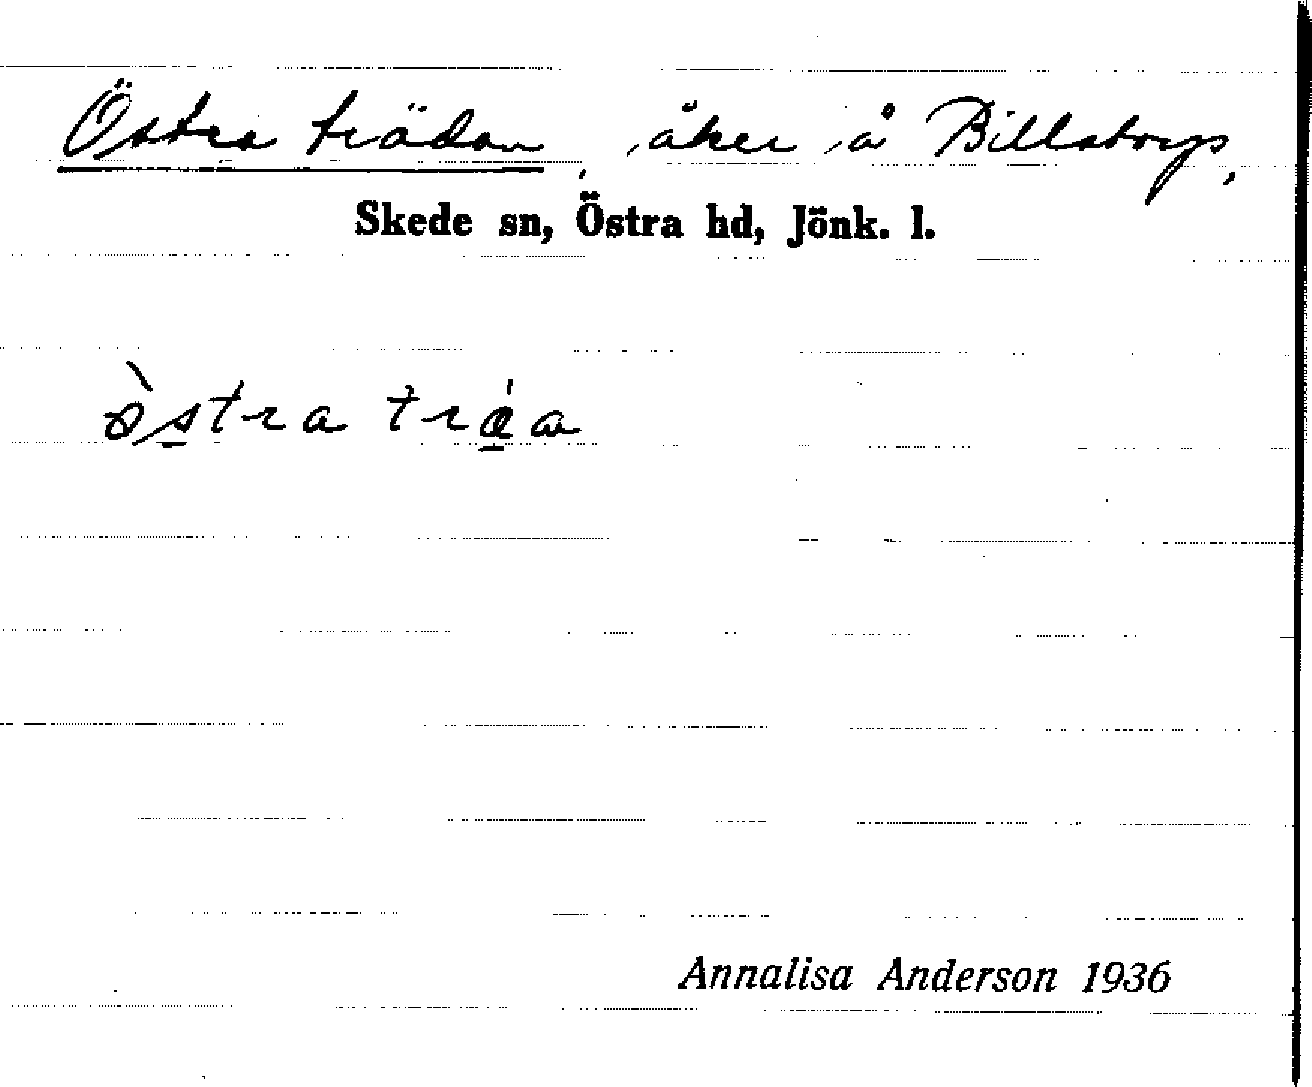 Östra trädan, åker å Billstorp,
Skede sn, Östra hd, Jönk. l.
òstra tráa
Annalisa Anderson 1936